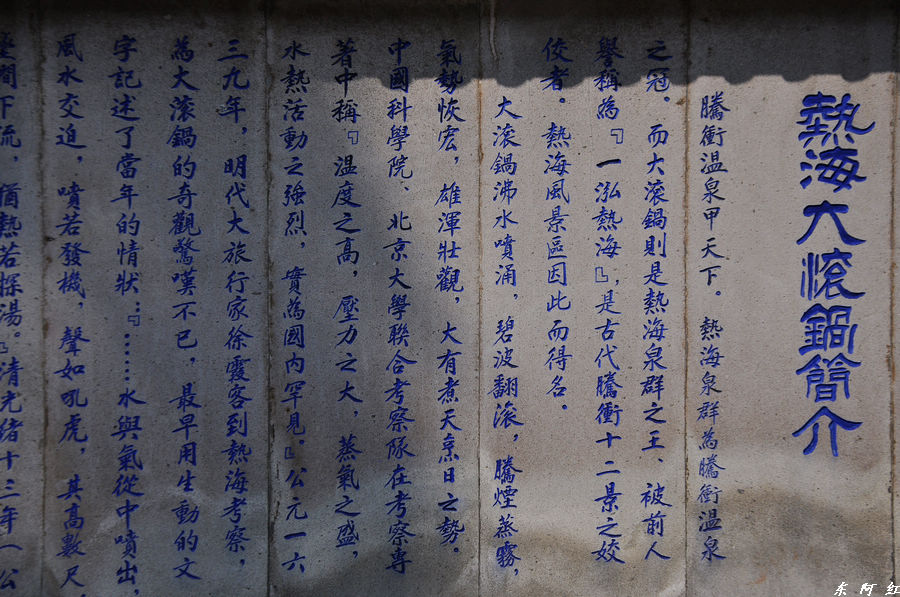 熱海大滾鍋簡介
騰衝溫泉甲天下。熱海泉群為騰衝溫泉
之冠。而大滾鍋則是熱海泉群之王、被前人
譽稱為『一泓熱海』，是古代騰衝十二景之姣
佼者。熱海風景區因此而得名。
大滾鍋沸水噴涌，碧波翻滾，騰煙蒸霧，
氣勢恢宏，雄渾壯觀，大有煮天烹日之勢。
中國科學院、北京大學聯合考察隊在考察專
著中稱『溫度之高，壓力之大，蒸氣之盛，
水熱活動之強烈，實為國內罕見。』公元一六
三九年，明代大旅行家徐霞客到熱海考察，
為大滾鍋的奇觀驚嘆不已，最早用生動的文
字記述了當年的情狀：『……水與氣從中噴出，
風水交迫，噴若發機，聲如吼虎，其高數尺，
間下流，猶熱若探湯。』清光緒十三年（公
东阿红